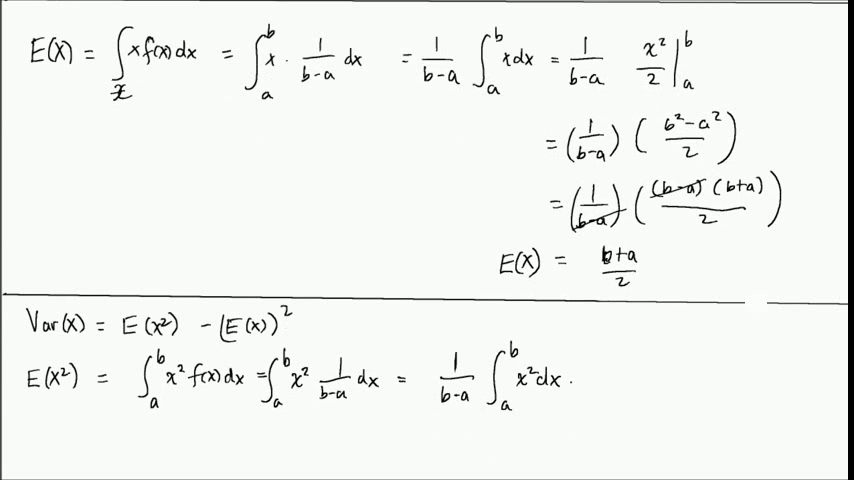 E(X) = ∫_𝓧 x f(x) dx = ∫_a^b x · 1/(b-a) dx = 1/(b-a) ∫_a^b x dx = 1/(b-a) x²/2 |_a^b
= (1/(b-a)) ((b²-a²)/2)
= (1/(b-a)) ((b-a)(b+a)/2)
E(X) = (b+a)/2
Var(X) = E(X²) - (E(X))²
E(X²) = ∫_a^b x² f(x) dx = ∫_a^b x² 1/(b-a) dx = 1/(b-a) ∫_a^b x² dx.